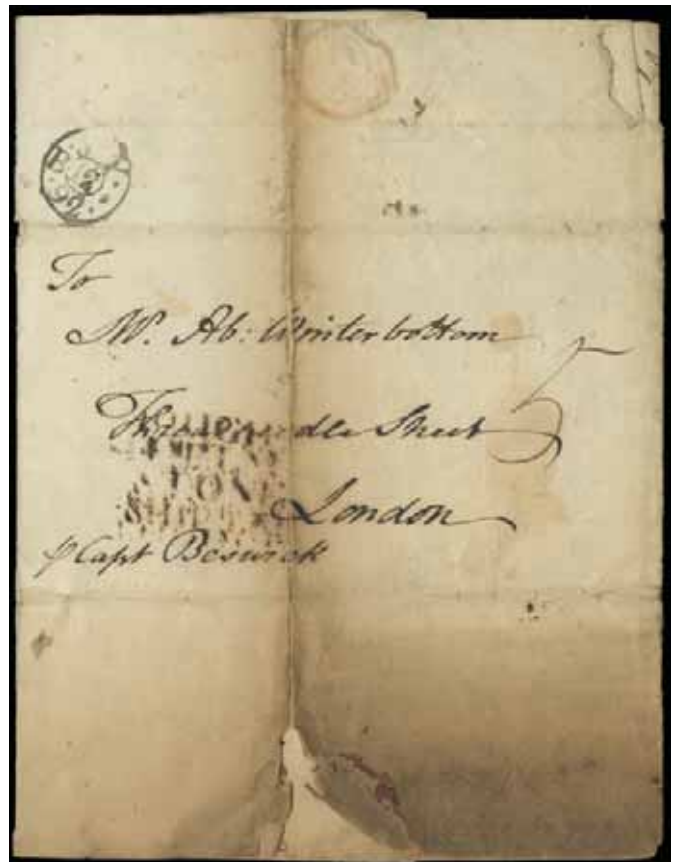 To
Mr. Ab: Winterbottom
Threadneedle Street
5
London
SHIP
⅌ Capt Beswick